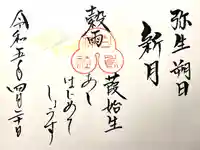 弥生朔日
新月
穀雨
葭始生
あし
はじめて
しょうず
令和五年四月二十日